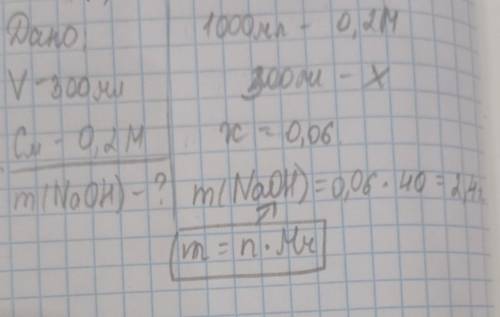 Дано:
V - 300 мл
См - 0,2 М
m(NaOH) - ?
1000 мл - 0,2 М
300 мл - X
x = 0,06
m(NaOH) = 0,06 · 40 = 2,4г
m = n · Mr